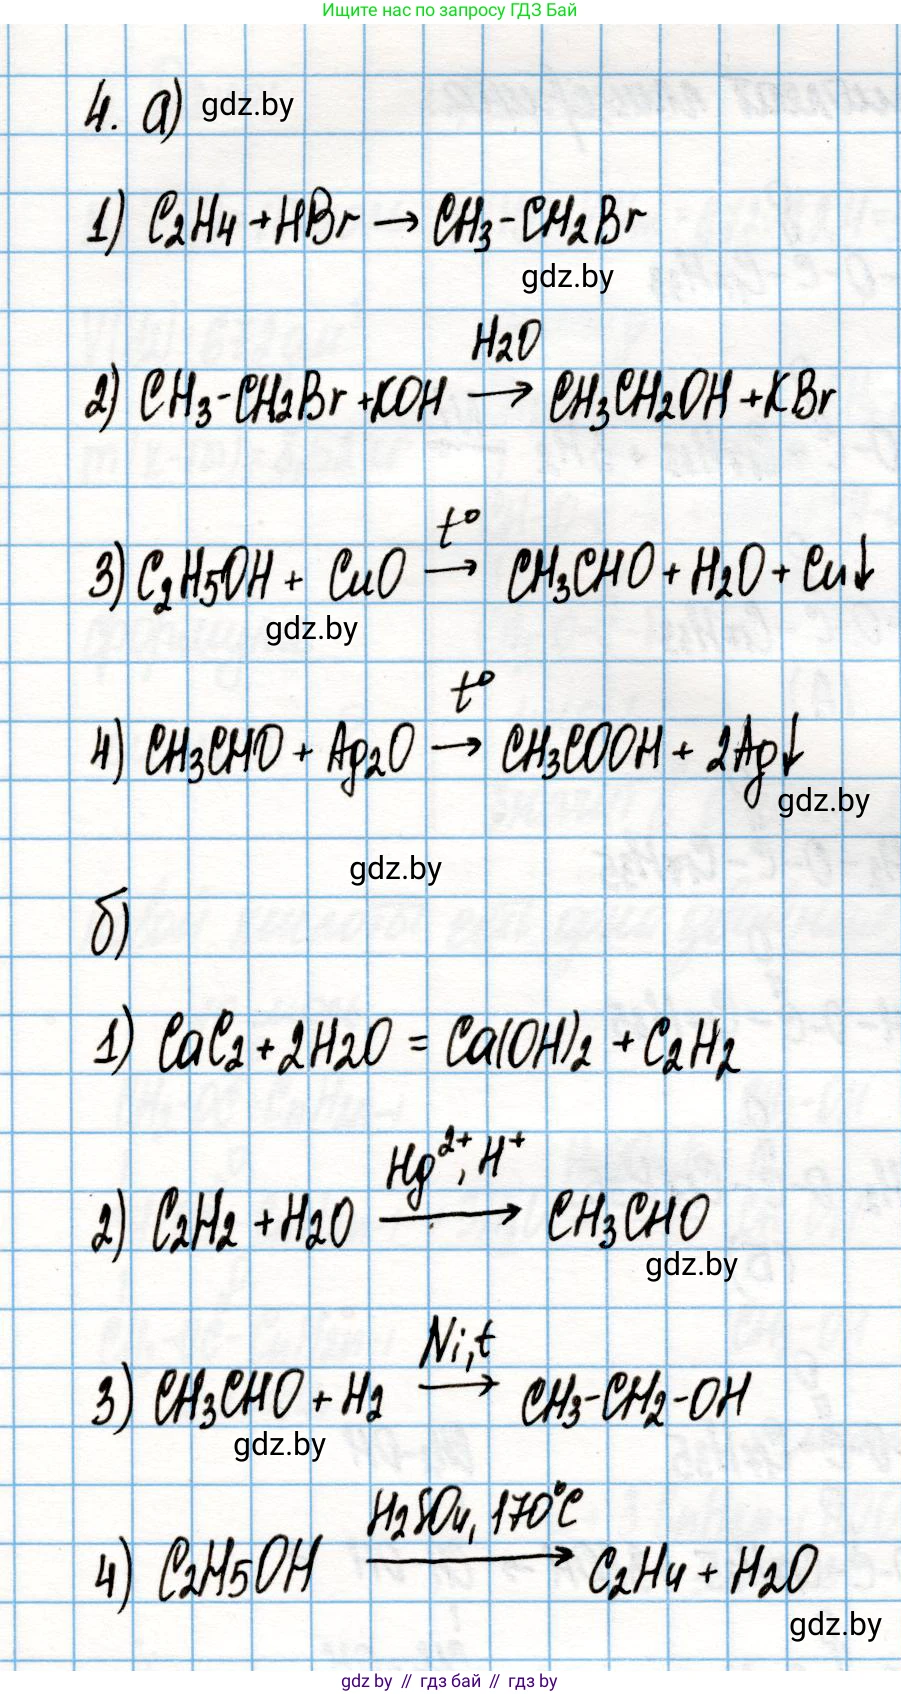 Ищите нас по запросу ГДЗ Бай
4. а) gdz.by
1) C2H4 + HBr → CH3-CH2Br
gdz.by
H2O
2) CH3-CH2Br + KOH → CH3CH2OH + KBr
t°
3) C2H5OH + CuO → CH3CHO + H2O + Cu↓
gdz.by
t°
4) CH3CHO + Ag2O → CH3COOH + 2Ag↓
gdz.by
gdz.by
б)
1) CaC2 + 2H2O = Ca(OH)2 + C2H2
Hg2+, H+
2) C2H2 + H2O → CH3CHO
gdz.by
Ni, t
3) CH3CHO + H2 → CH3-CH2-OH
gdz.by
H2SO4, 170°C
4) C2H5OH → C2H4 + H2O
gdz.by
gdz.by // гдз бай // гдз by